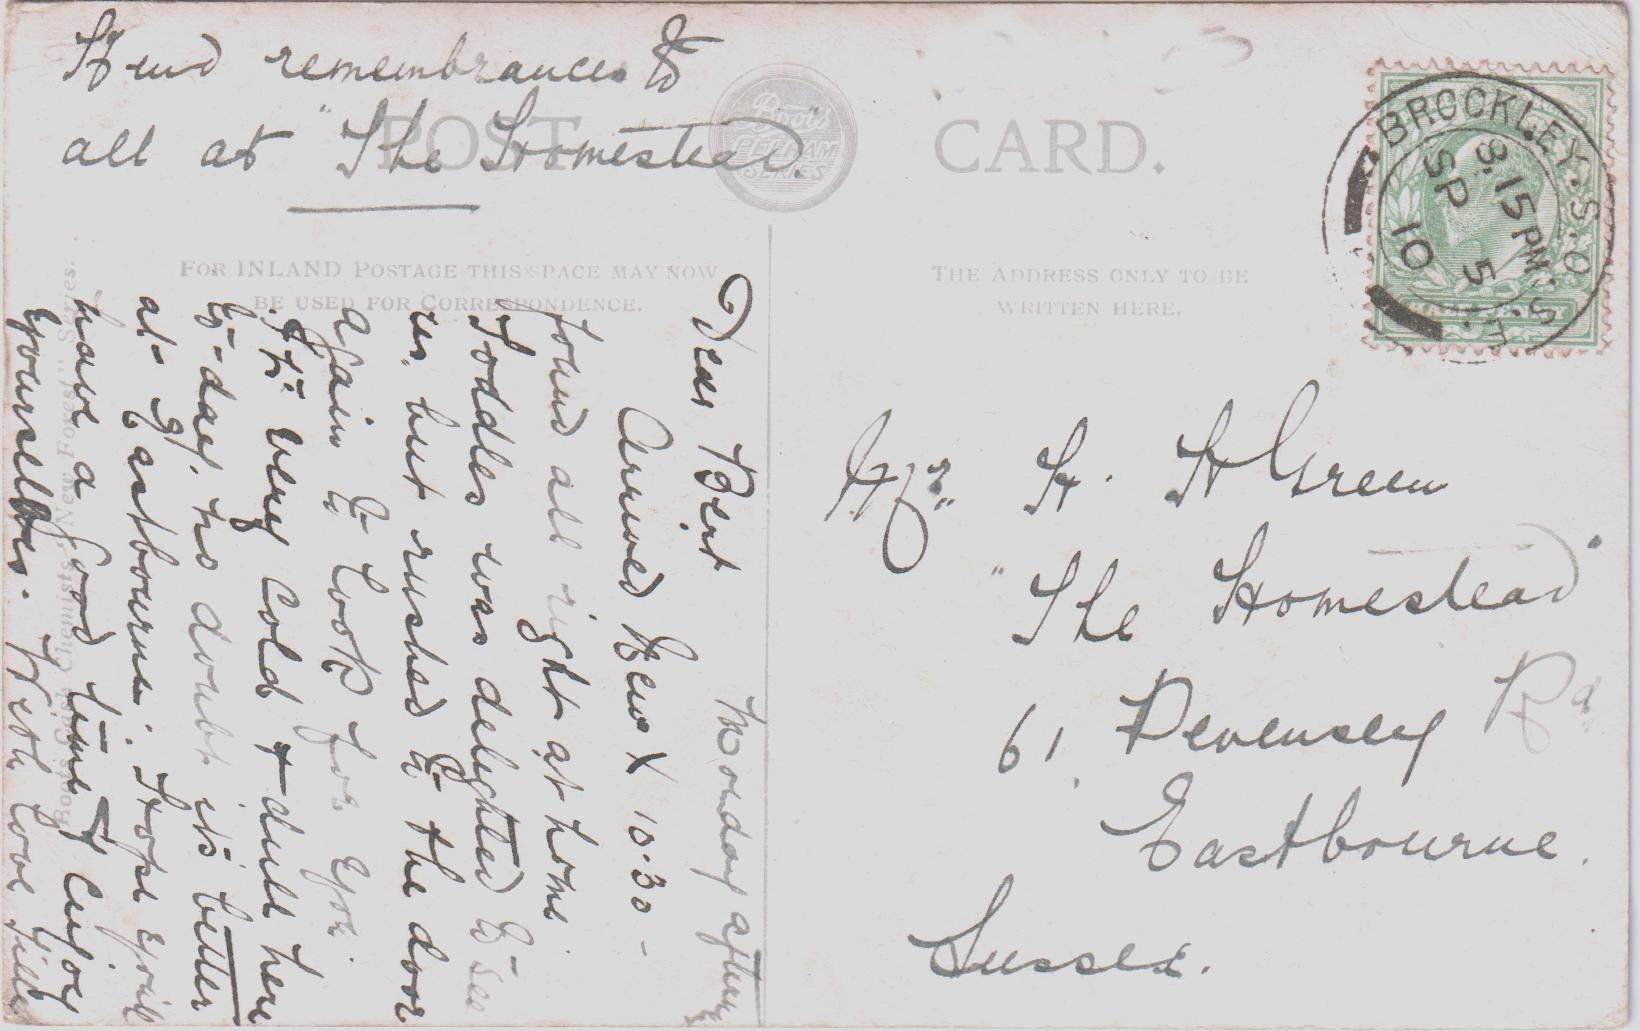 Kind remembrances to
all at "The Homestead."
POST CARD.
Boots
PELHAM
SERIES
FOR INLAND POSTAGE THIS SPACE MAY NOW
BE USED FOR CORRESPONDENCE.
THE ADDRESS ONLY TO BE
WRITTEN HERE.
BROCKLEY.S.O
S.E
3.15 PM
SP 5
10
Monday aftern
Dear Bert
Arrived New X 10.30 -
found all right at home
Toddles was delighted to see
us, but rushed to the door
again to look for you
. It is very cold & dull here
to-day, no doubt it's better
at Eastbourne. Hope you'll
have a good time & enjoy
yourselves. With love Tilly
Mr. H. H Green
"The Homestead"
61, Pevensey Rd
Eastbourne.
Sussex.
Boots Cash Chemists "New Forest" Series.